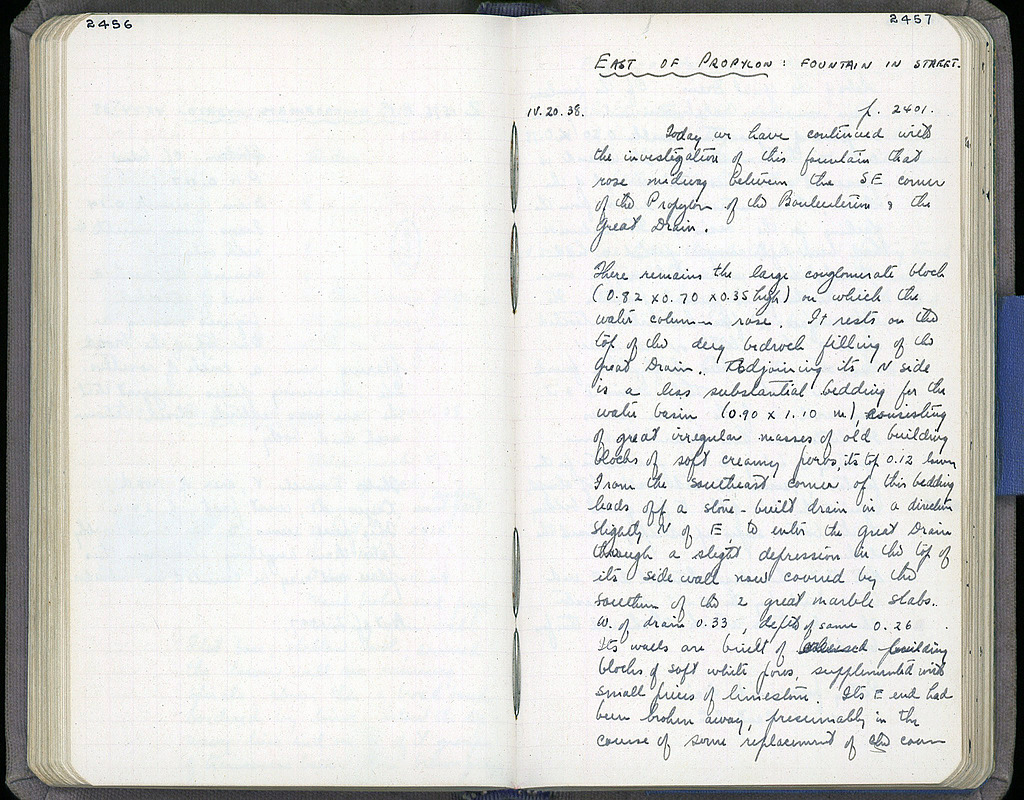 2456
2457
EAST OF PROPYLON: FOUNTAIN IN STREET.
IV.20.38.
p. 2401.
Today we have continued with
the investigation of this fountain that
rose midway between the SE corner
of the Propylon of the Bouleuterion & the
Great Drain.
There remains the large conglomerate block
(0.82 x 0.70 x 0.35 high) on which the
water column rose. It rests on the
top of the bedrock filling of the
Great Drain. Adjoining its N side
is a less substantial bedding for the
water basin (0.90 x 1.10 m), consisting
of great irregular masses of old building
blocks of soft creamy poros, its top 0.12 lower
From the southeast corner of this bedding
leads off a stone-built drain in a direction
slightly N of E, to enter the Great Drain
through a slight depression in the top of
its side wall now covered by the
southern of the 2 great marble slabs.
W. of drain 0.33, depth of same 0.26.
Its walls are built of building
blocks of soft white poros, supplemented with
small pieces of limestone. Its E end had
been broken away, presumably in the
course of some replacement of the cover